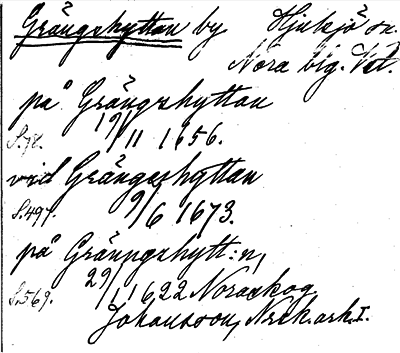 Grängshyttan by Hjulsjö sn.
Nora blg. Vstl.
på Grängzhyttan
S.78. 19/11 1656.
vid Grängeshyttan
S.497. 9/6 1673.
på Gräungshytt:n,
S.569. 29/1 1622 Noraskog
Johansson, Nrsk.ark.I.